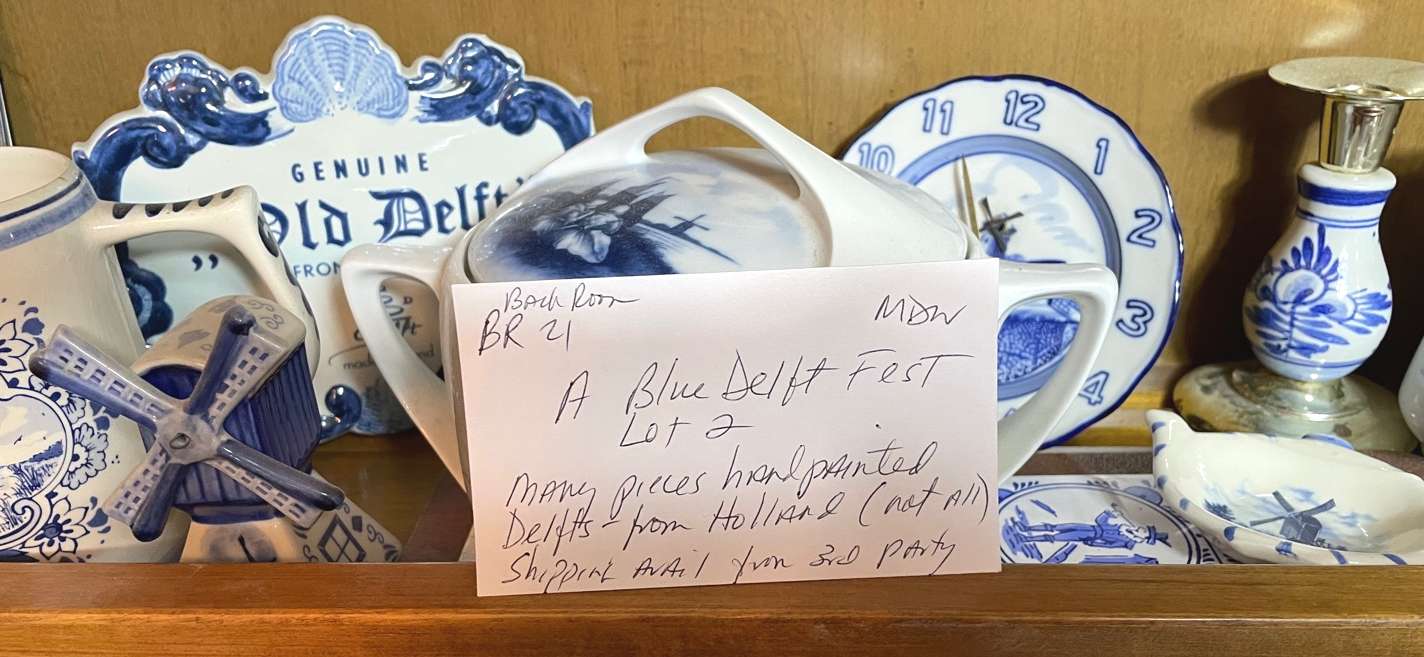 GENUINE
Old Delft
„
FROM
11
12
10
1
2
3
4
Back Room
MDW
BR 21
A Blue Delft Fest
Lot 2
Many pieces handpainted
Delfts - from Holland (not All)
Shipping Avail from 3rd party